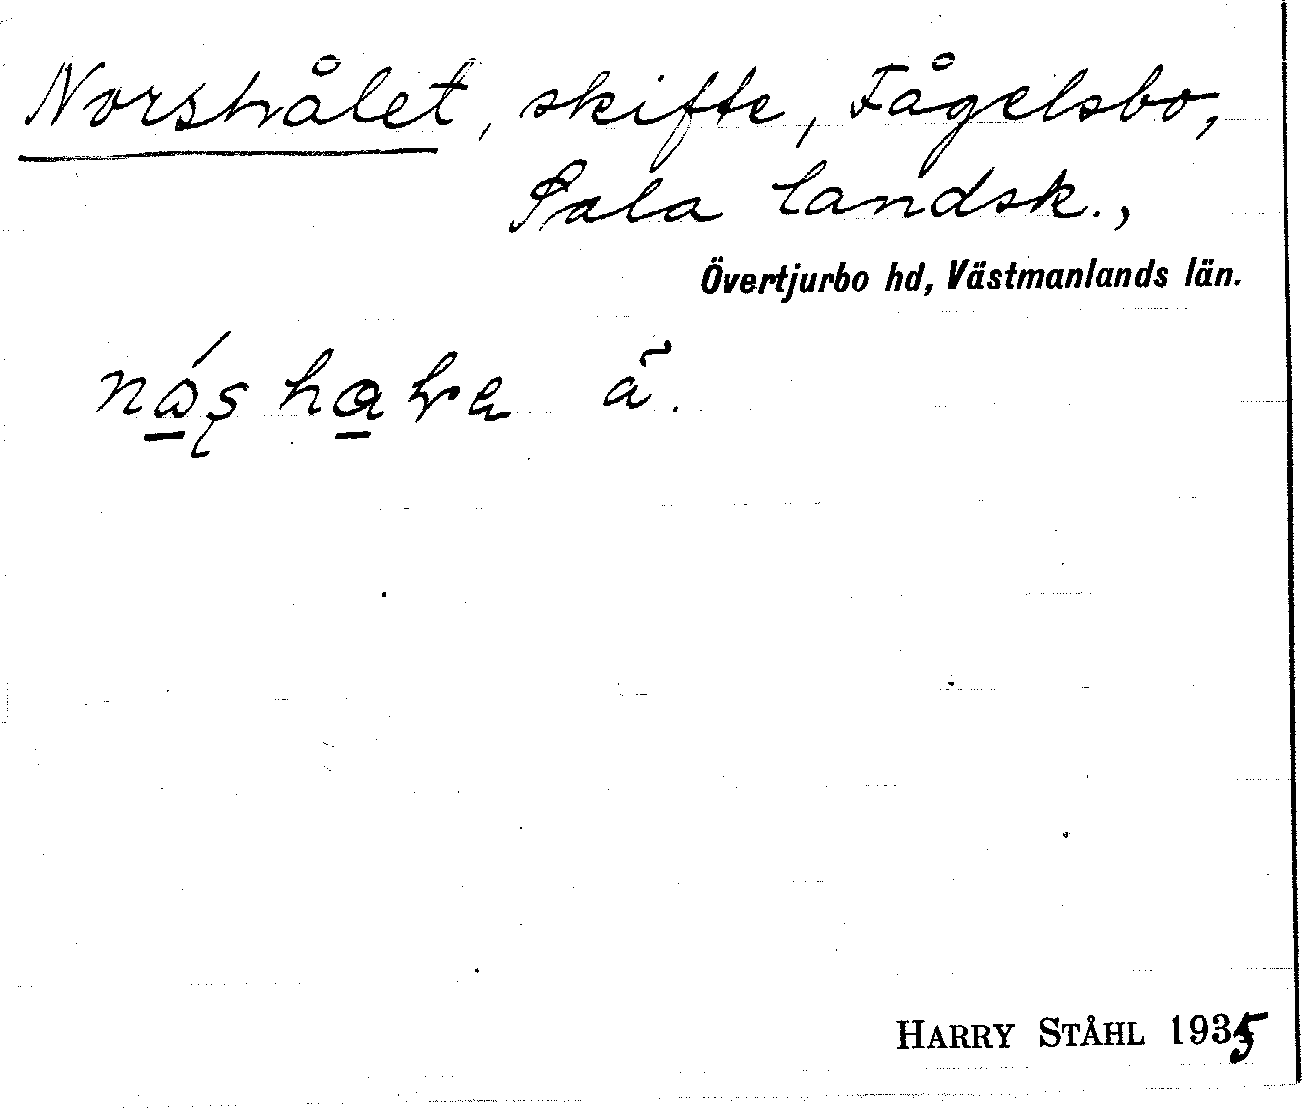 Norshålet, skifte, Fågelsbo,
Sala landsk.,
Övertjurbo hd, Västmanlands län.
HARRY STÅHL 1935